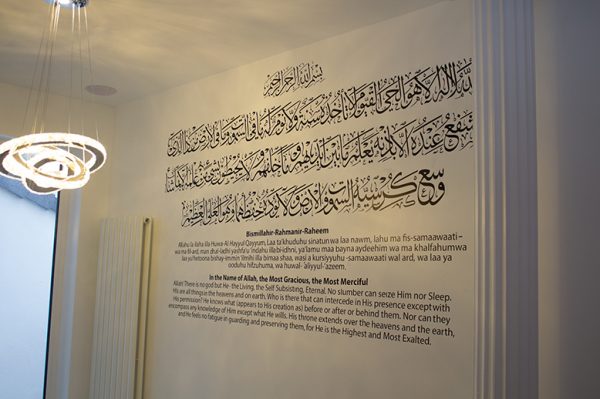 بسم الله الرحمن الرحيم
الله لا إله إلا هو الحي القيوم لا تأخذه سنة ولا نوم له ما في السموت وما في الأرض من ذا الذي
يشفع عنده إلا بإذنه يعلم ما بين أيديهم وما خلفهم ولا يحيطون بشيء من علمه إلا بما شاء
وسع كرسيه السموت والأرض ولا يئوده حفظهما وهو العلي العظيم
Bismillahir-Rahmanir-Raheem
Allahu la ilaha illa Huwa-Al-Hayyul Qayyum, Laa ta'khuduhu sinatun wa laa nawm, lahu ma fis-samaawaati–
wa-ma fil-ard, man dhal-ladhi yashfa'u 'indahu illa bi-idhni, ya'lamu maa bayna aydeehim wa ma khalfahumwa
laa yu'hetoona bishay-immin 'ilmihi illa bimaa shaa, wasi a kursiyyuhu -samaawaati wal ard, wa laa ya
ooduhu hifzuhuma, wa huwal-'aliyyul-'azeem.
In the Name of Allah, the Most Gracious, the Most Merciful
Allah! There is no god but He- the Living, the Self Subsisting, Eternal, No slumber can seize Him nor Sleep.
His are all things in the heavens and on earth. Who is there that can intercede in His presence except with
His permission? He knows what (appears to His creation as) before or after or behind them. Nor can they
encompass any knowledge of Him except what He wills. His throne extends over the heavens and the earth,
and He feels no fatigue in guarding and preserving them, for He is the Highest and Most Exalted.